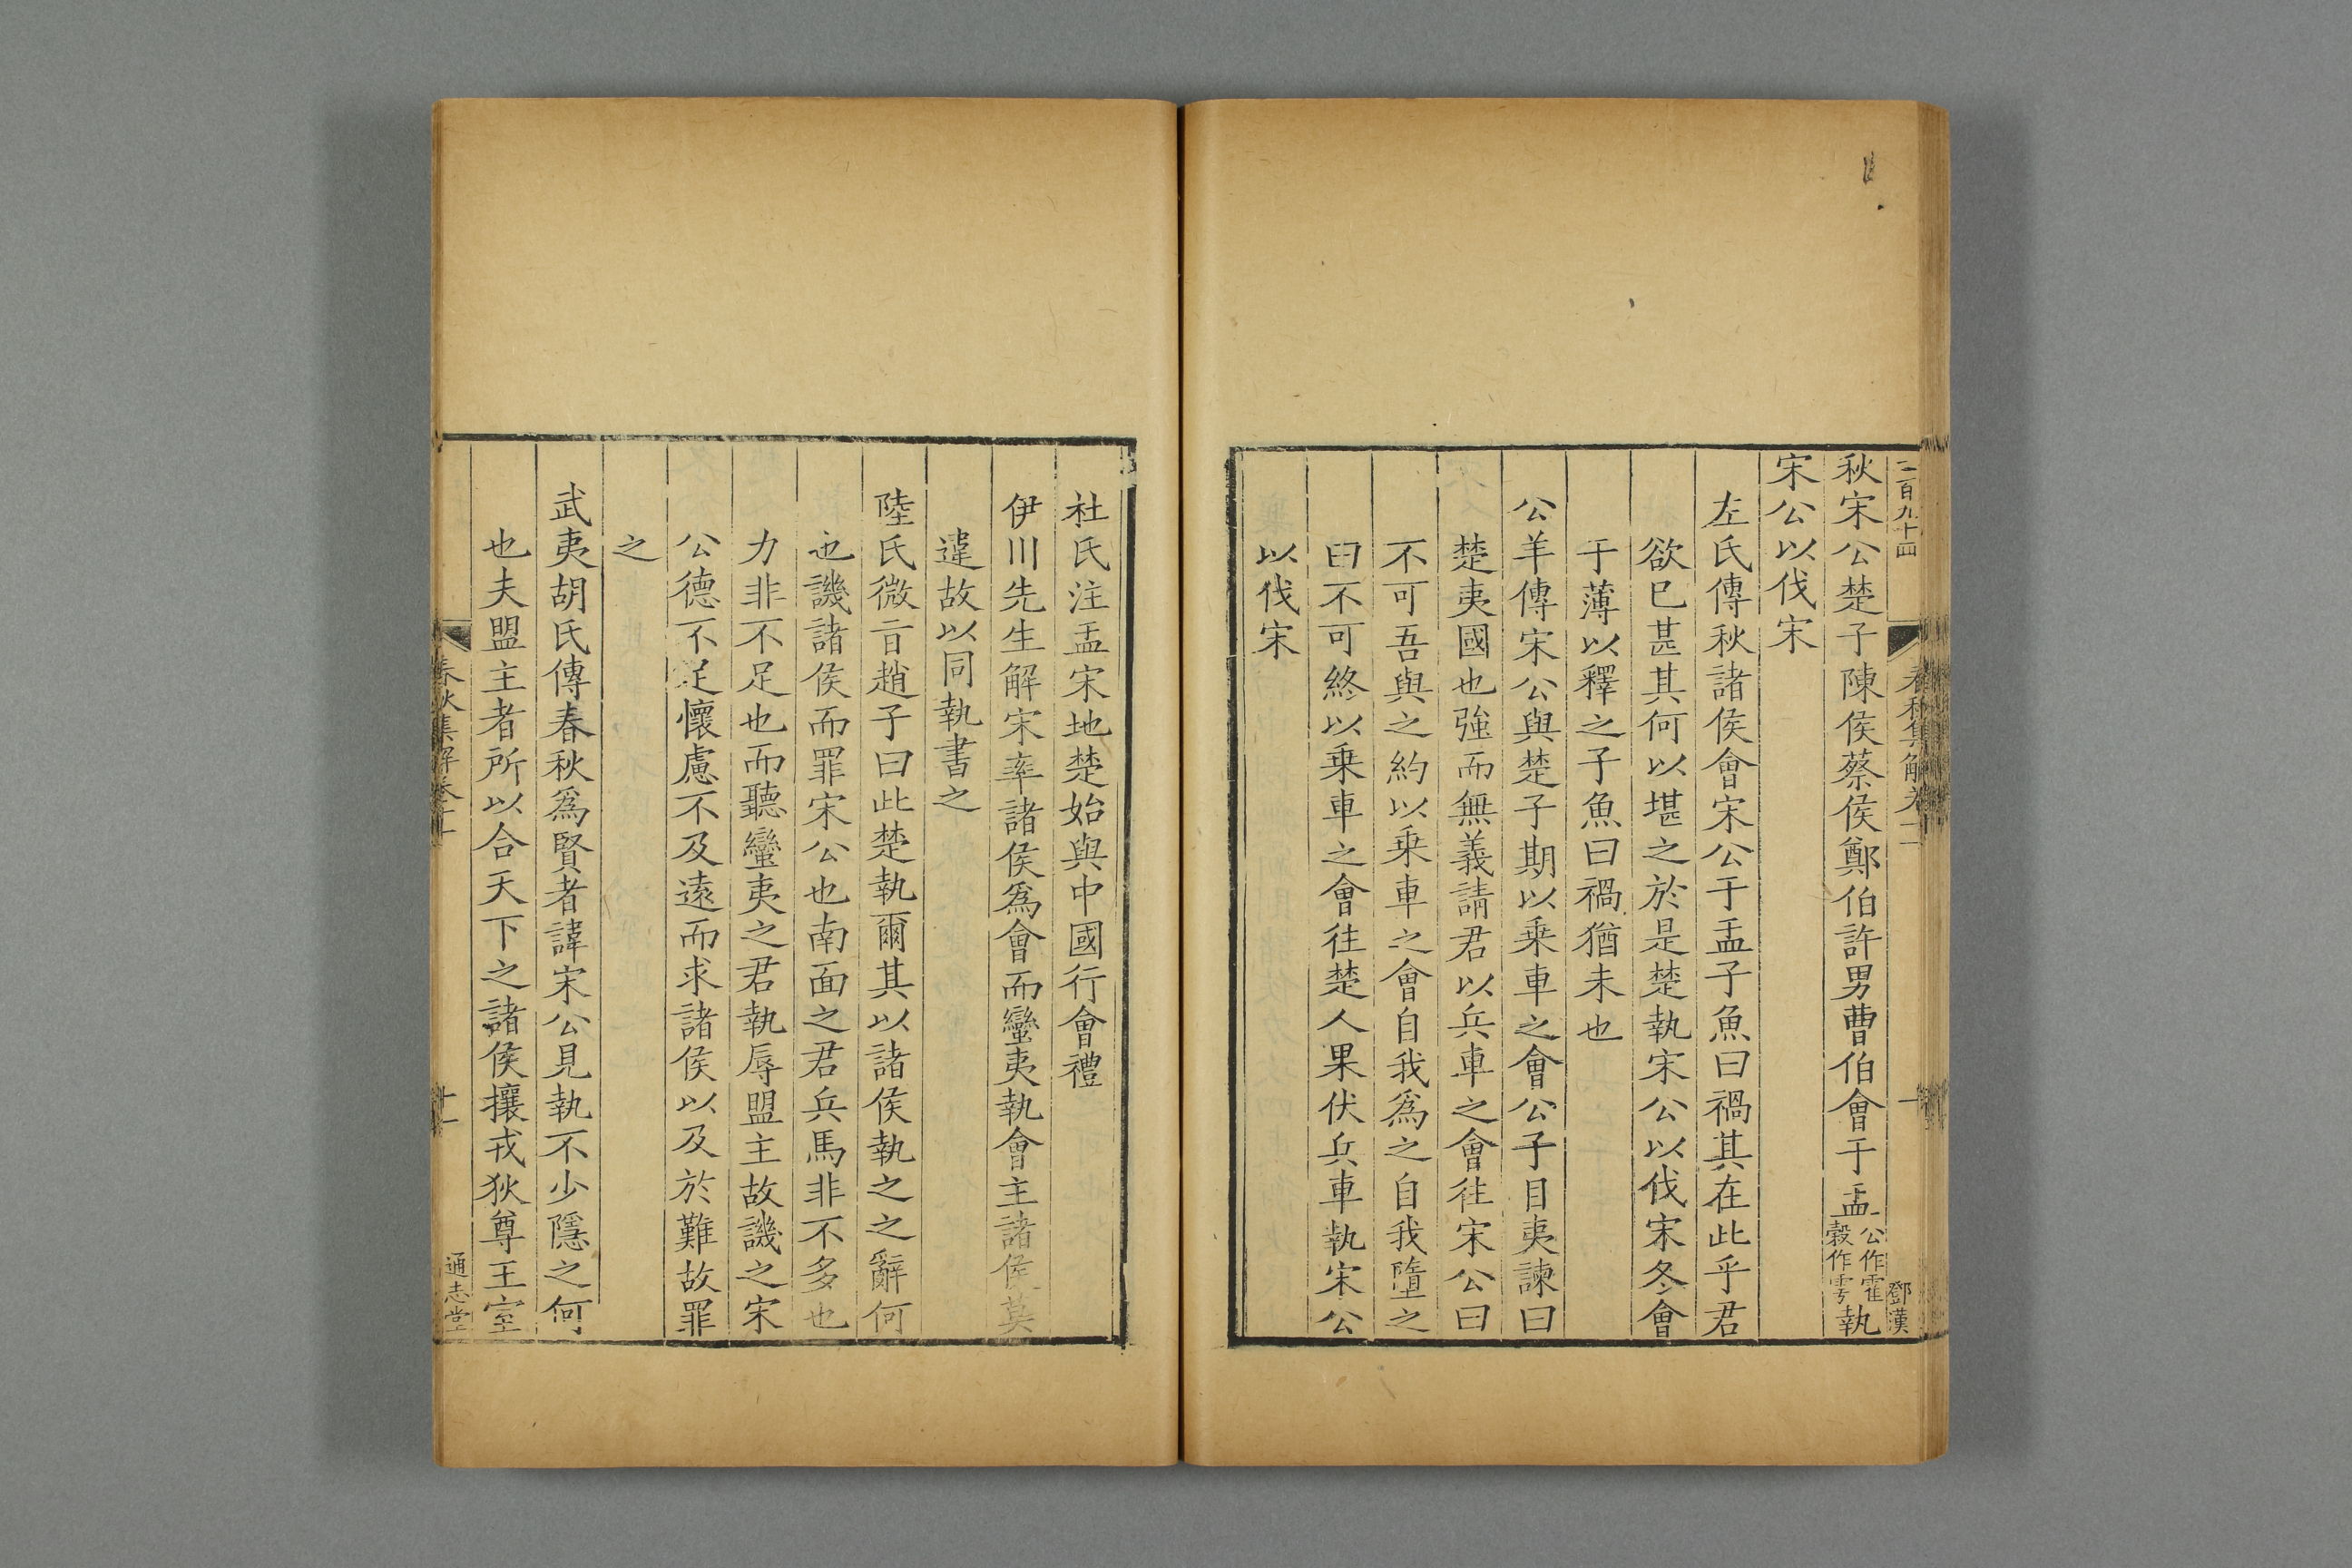 二百九十四
鄧漢
秋宋公楚子陳侯蔡侯鄭伯許男曹伯會于盂公作霍穀作雩執
宋公以伐宋
左氏傳秋諸侯會宋公于盂子魚曰禍其在此乎君
欲已甚其何以堪之於是楚執宋公以伐宋冬會
于薄以釋之子魚曰禍猶未也
公羊傳宋公與楚子期以乗車之會公子目夷諫曰
楚夷國也強而無義請君以兵車之會往宋公曰
不可吾與之約以乗車之會自我爲之自我墮之
曰不可終以乗車之會往楚人果伏兵車執宋公
以伐宋
杜氏注盂宋地楚始與中國行會禮
伊川先生解宋率諸侯爲會而蠻夷執會主諸侯莫
違故以同執書之
陸氏微旨趙子曰此楚執爾其以諸侯執之之辭何
也譏諸侯而罪宋公也南面之君兵馬非不多也
力非不足也而聽蠻夷之君執辱盟主故譏之宋
公德不足懷慮不及遠而求諸侯以及於難故罪
之
武夷胡氏傳春秋爲賢者諱宋公見執不少隱之何
也夫盟主者所以合天下之諸侯攘戎狄尊王室
春秋集解卷十二
十一
通志堂